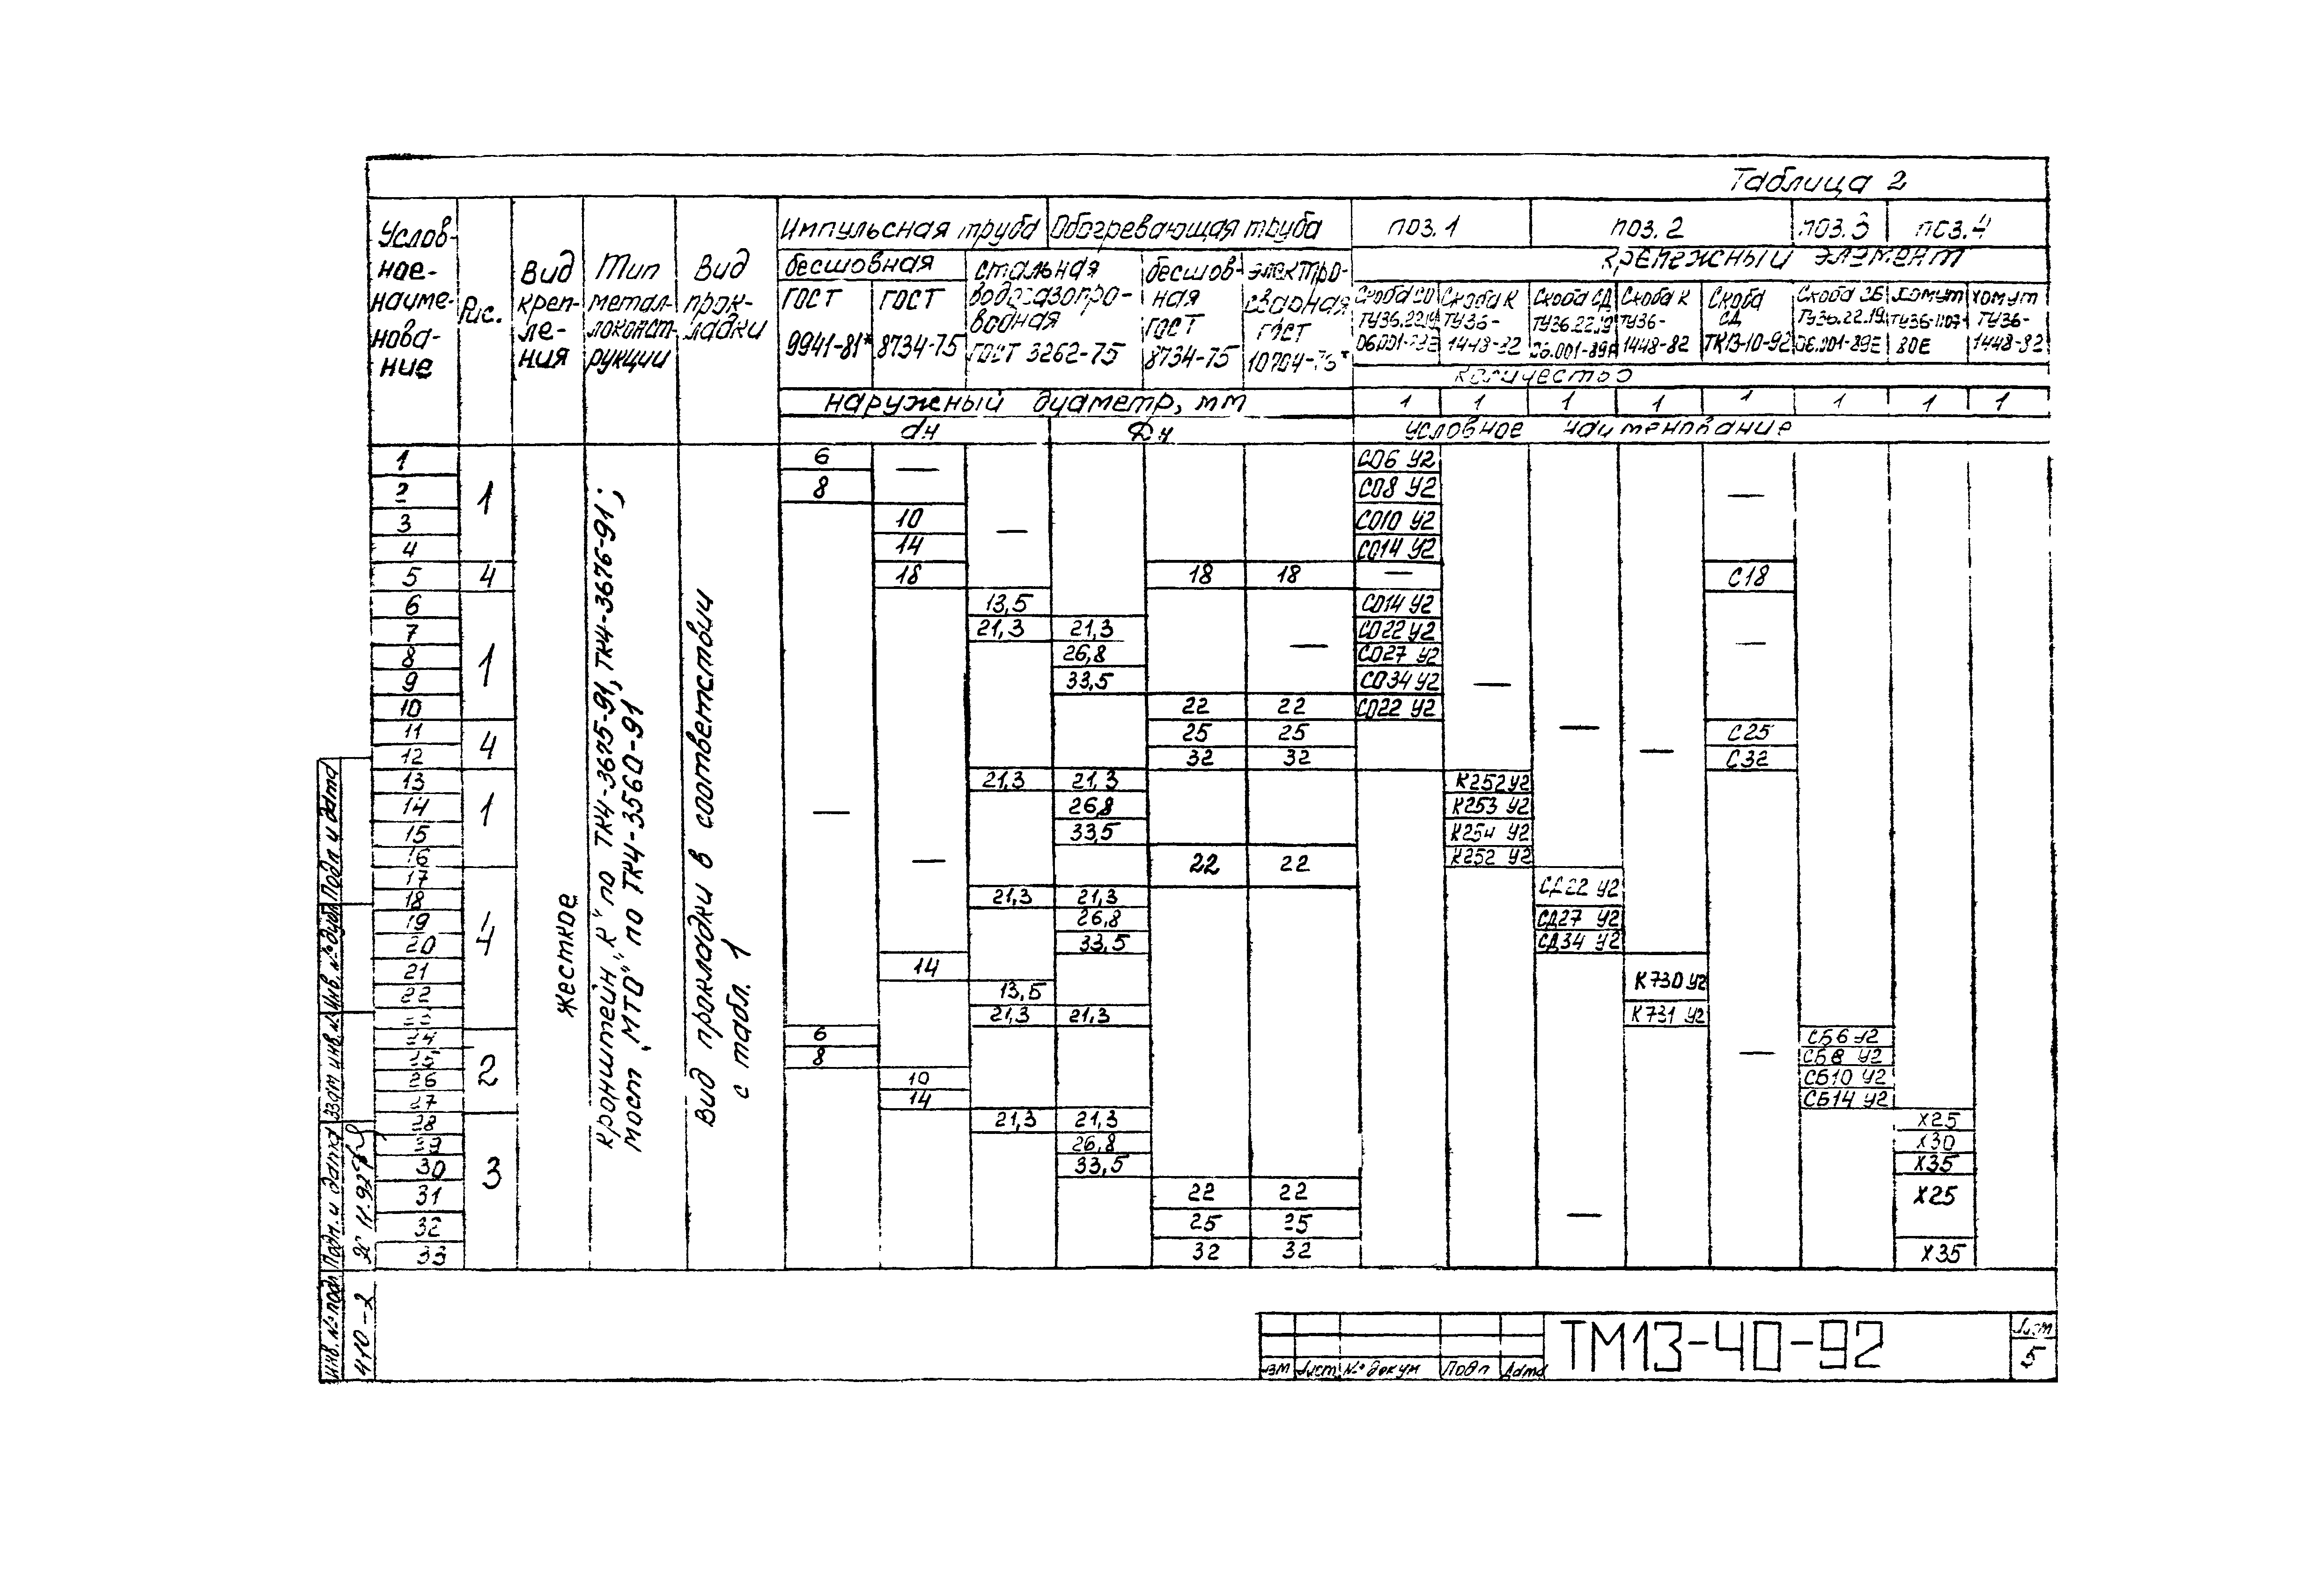 Таблица 2
Условное наименование
Рис.
Вид крепления
Тип металлоконструкции
Вид прокладки
Импульсная труба
Обогревающая труба
поз.1
поз.2
поз.3
поз.4
бесшовная
стальная водогазопроводная ГОСТ 3262-75
бесшовная ГОСТ 8734-75
электросварная ГОСТ
крепежный элемент
ГОСТ 9941-81*
ГОСТ 8734-75
Скоба СО ТУ36.22.19
Скоба К ТУ36-1448-82
Скоба СД ТУ36.22.19
Скоба К ТУ36-1448-82
Скоба СД ТК13-10-92
Скоба СБ ТУ36.22.19.06.001-89Е
Хомут ТУ36-1107-80Е
хомут ТУ36-1448-82
количество
наружный диаметр, мм
1 1 1 1 1 1 1 1
dн
Dн
условное наименование
жесткое
кронштейн „К" по ТК4-3675-91, ТК4-3676-91;
мост „МТО" по ТК4-3560-91
Вид прокладки в соответствии
с табл. 1
1 1 6 — СО6 У2
2 8 СО8 У2 —
3 10 — СО10 У2
4 14 СО14 У2
5 4 18 18 18 — С18
6 1 13,5 СО14 У2
7 21,3 21,3 СО22 У2
8 26,8 — СО27 У2 —
9 33,5 СО34 У2 —
10 22 22 СО22 У2
11 4 25 25 — С25
12 32 32 — С32
13 1 21,3 21,3 К252 У2
14 — 26,8 К253 У2
15 33,5 К254 У2
16 — 22 22 К252 У2
17 4 СД22 У2
18 21,3 21,3
19 26,8 СД27 У2
20 33,5 СД34 У2
21 14 К730 У2
22 13,5
23 21,3 21,3 К731 У2
24 2 6 СБ6 У2
25 8 — СБ8 У2
26 10 СБ10 У2
27 14 СБ14 У2
28 3 21,3 21,3 Х25
29 26,8 Х30
30 33,5 Х35
31 22 22 Х25
32 25 25 —
33 32 32 Х35
Подп и дата
Инв. № дубл
Взам инв. №
Подп. и дата
Инв. № подл
410-2
Лист № докум Подп Дата
ТМ13-40-92
Лист
5